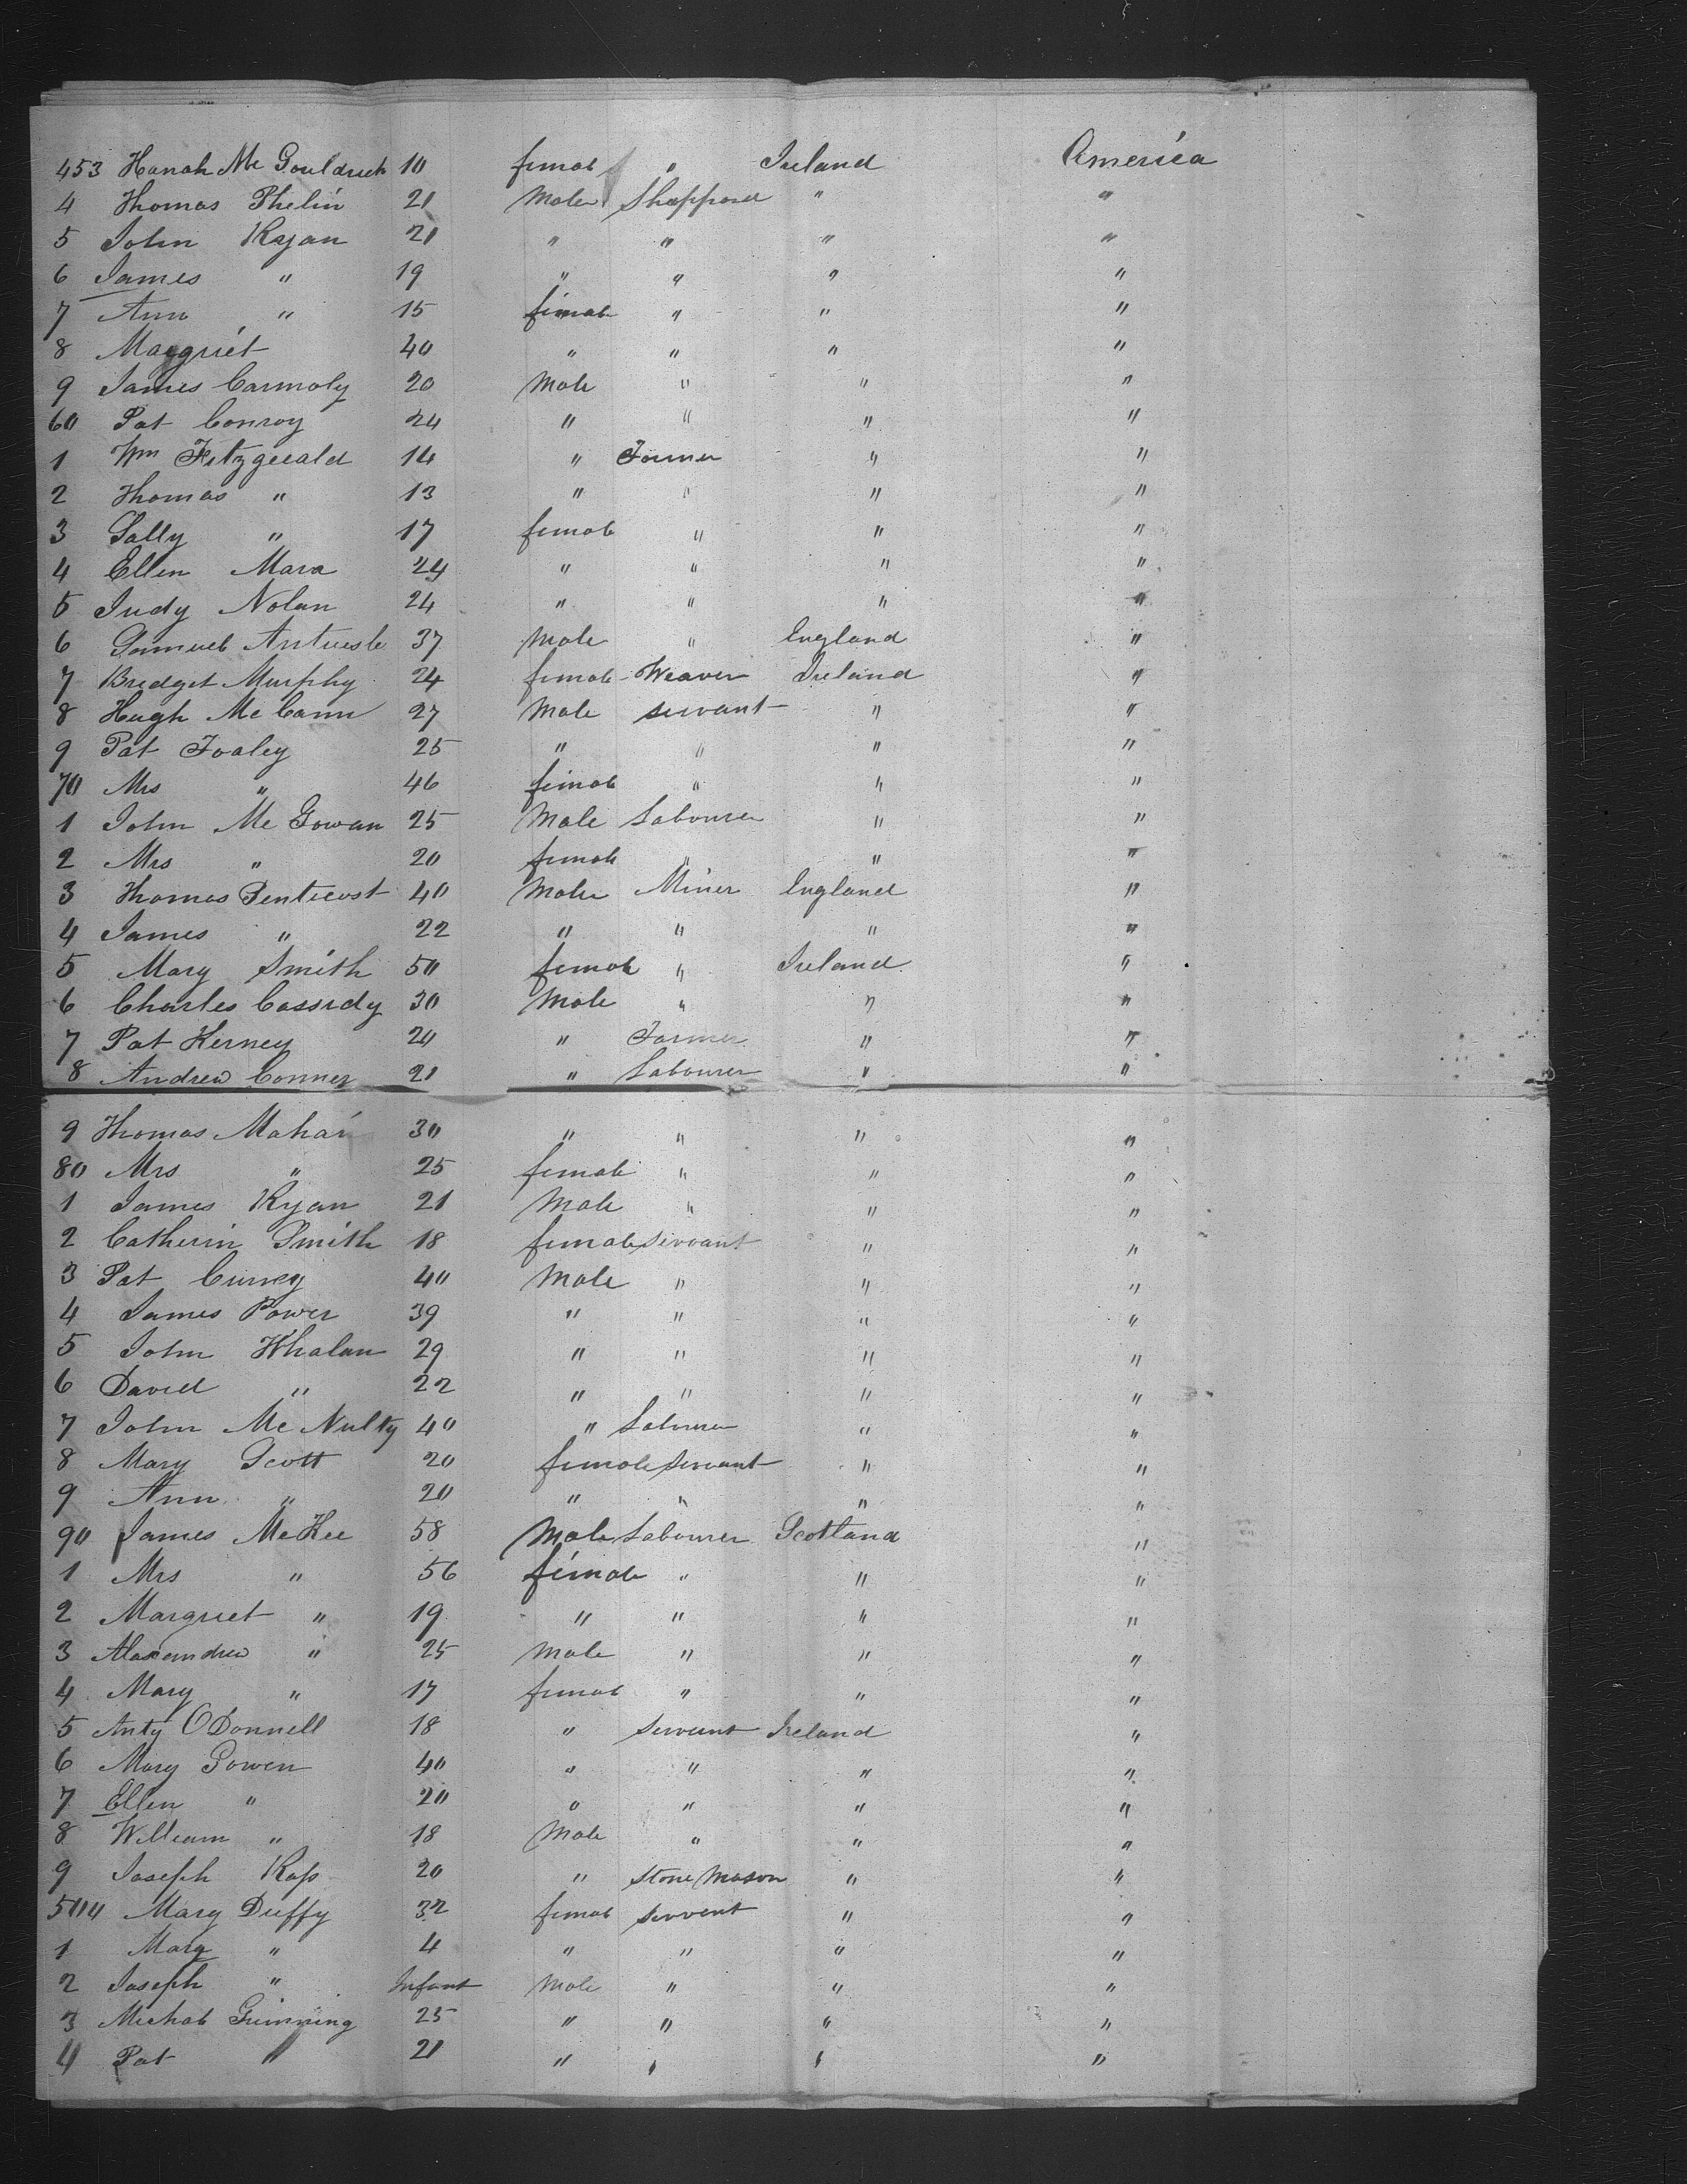 453 Hanah Mc Gouldrick 10 female " Ireland America
4 Thomas Phelin 21 Male " "
5 John Ryan 21 " " " "
6 James " 19 " " " "
7 Ann " 15 female " " "
8 Margriet 40 " " " "
9 James Carmoly 20 Male " " "
60 Pat Conroy 24 " " " "
1 Wm Fitzgerald 14 " Farmer " "
2 Thomas " 13 " " " "
3 Sally " 17 female " " "
4 Ellen Mara 24 " " " "
5 Judy Nolan 24 " " " "
6 Samuel 37 Male " England "
7 Bridget Murphy 24 female Weaver Ireland "
8 Hugh Mc Cann 27 Male servant " "
9 Pat Foaley 25 " " " "
70 Mrs " 46 female " " "
1 John Mc Gowan 25 Male Labourer " "
2 Mrs " 20 female " " "
3 Thomas Penticost 40 Male Miner England "
4 James " 22 " " " "
5 Mary Smith 50 female " Ireland "
6 Charles Cassidy 30 Male " " "
7 Pat Kerney 20 " Farmer " "
8 Andrew Conner 21 " Labourer " "
9 Thomas Mahar 30 " " " "
80 Mrs " 25 female " " "
1 James Ryan 21 Male " " "
2 Catherin Smith 18 female servant " "
3 Pat Currey 40 Male " " "
4 James Power 39 " " " "
5 John Whalan 29 " " " "
6 David " 22 " " " "
7 John Mc Nulty 40 " Labourer " "
8 Mary Scott 20 female servant " "
9 Ann " 20 " " " "
90 James McKee 58 Male Labourer Scotland "
1 Mrs " 56 female " " "
2 Margriet " 19 " " " "
3 Alaxandrew " 25 Male " " "
4 Mary " 17 female " " "
5 Anty ODonnell 18 " servant Ireland "
6 Mary Gowen 40 " " " "
7 Ellen " 20 " " " "
8 William " 18 Male " " "
9 Joseph Ross 20 " Stone Mason " "
500 Mary Duffy 32 female servent " "
1 Mary " 4 " " " "
2 Joseph " Infant Male " " "
3 Michal Grimming 25 " " " "
4 Pat " 21 " " " "